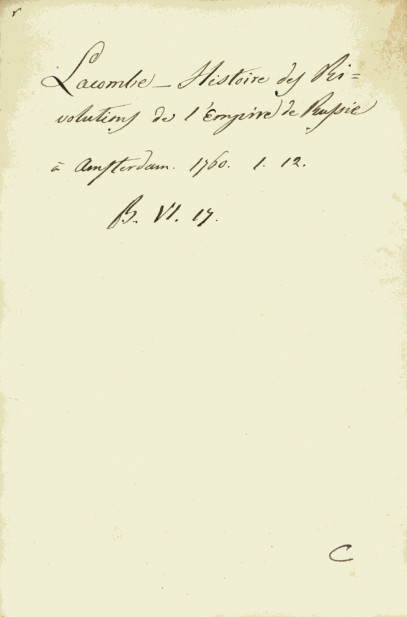 Lacombe – Histoire des Ré=
volutions de l'Empire de Russie
à Amsterdam. 1760. 1. 12.
B. VI. 17.
C